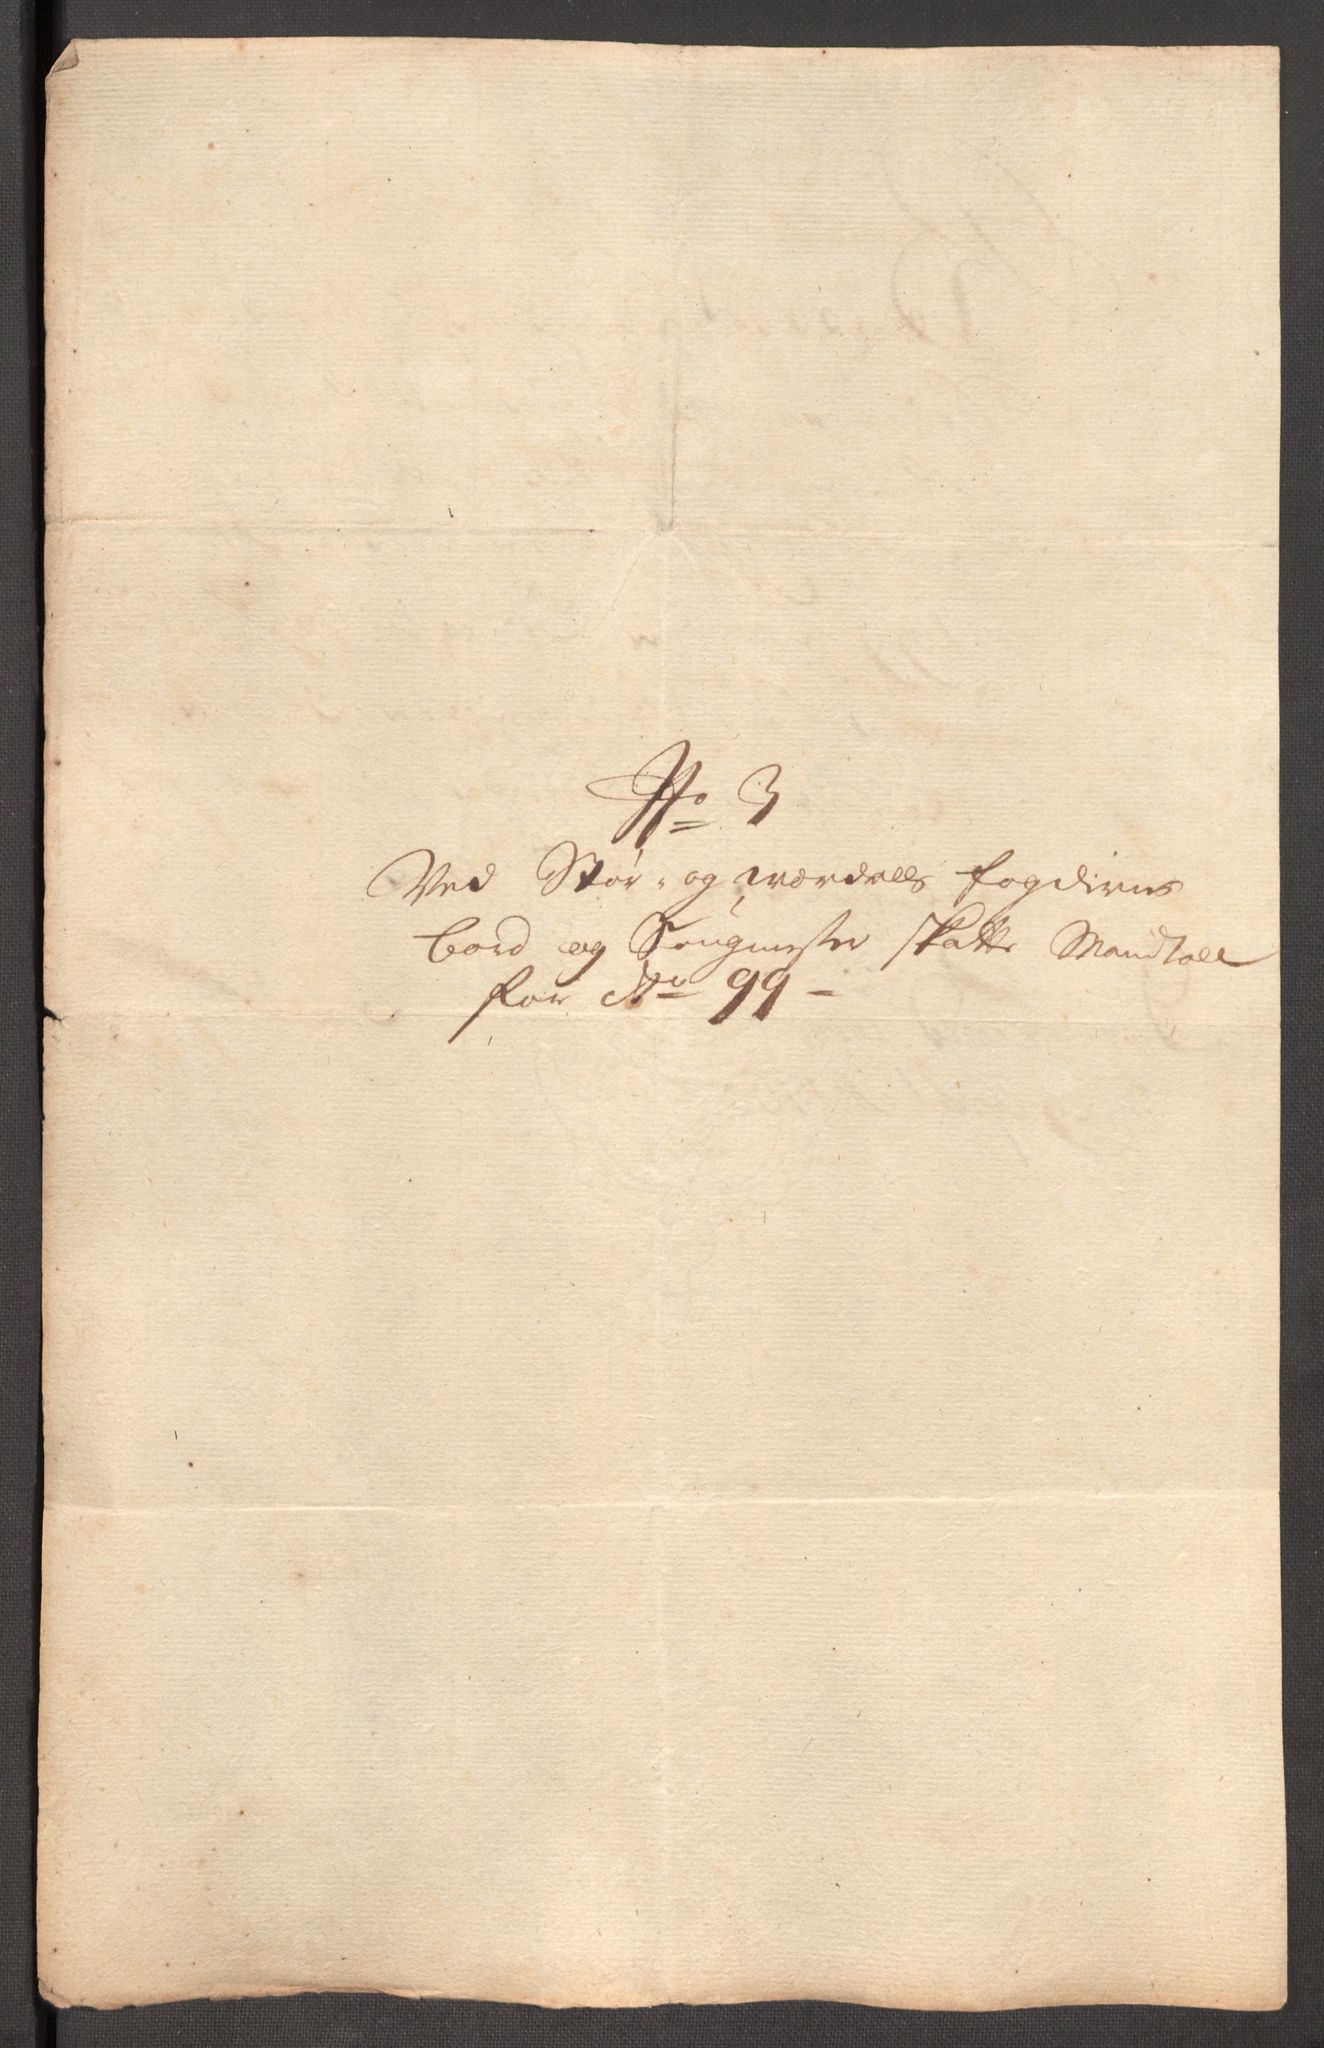 No 3
Ved Stør- og Værdals fogderies
bord og Længmester skatte Mandtall
for Ao 99 -